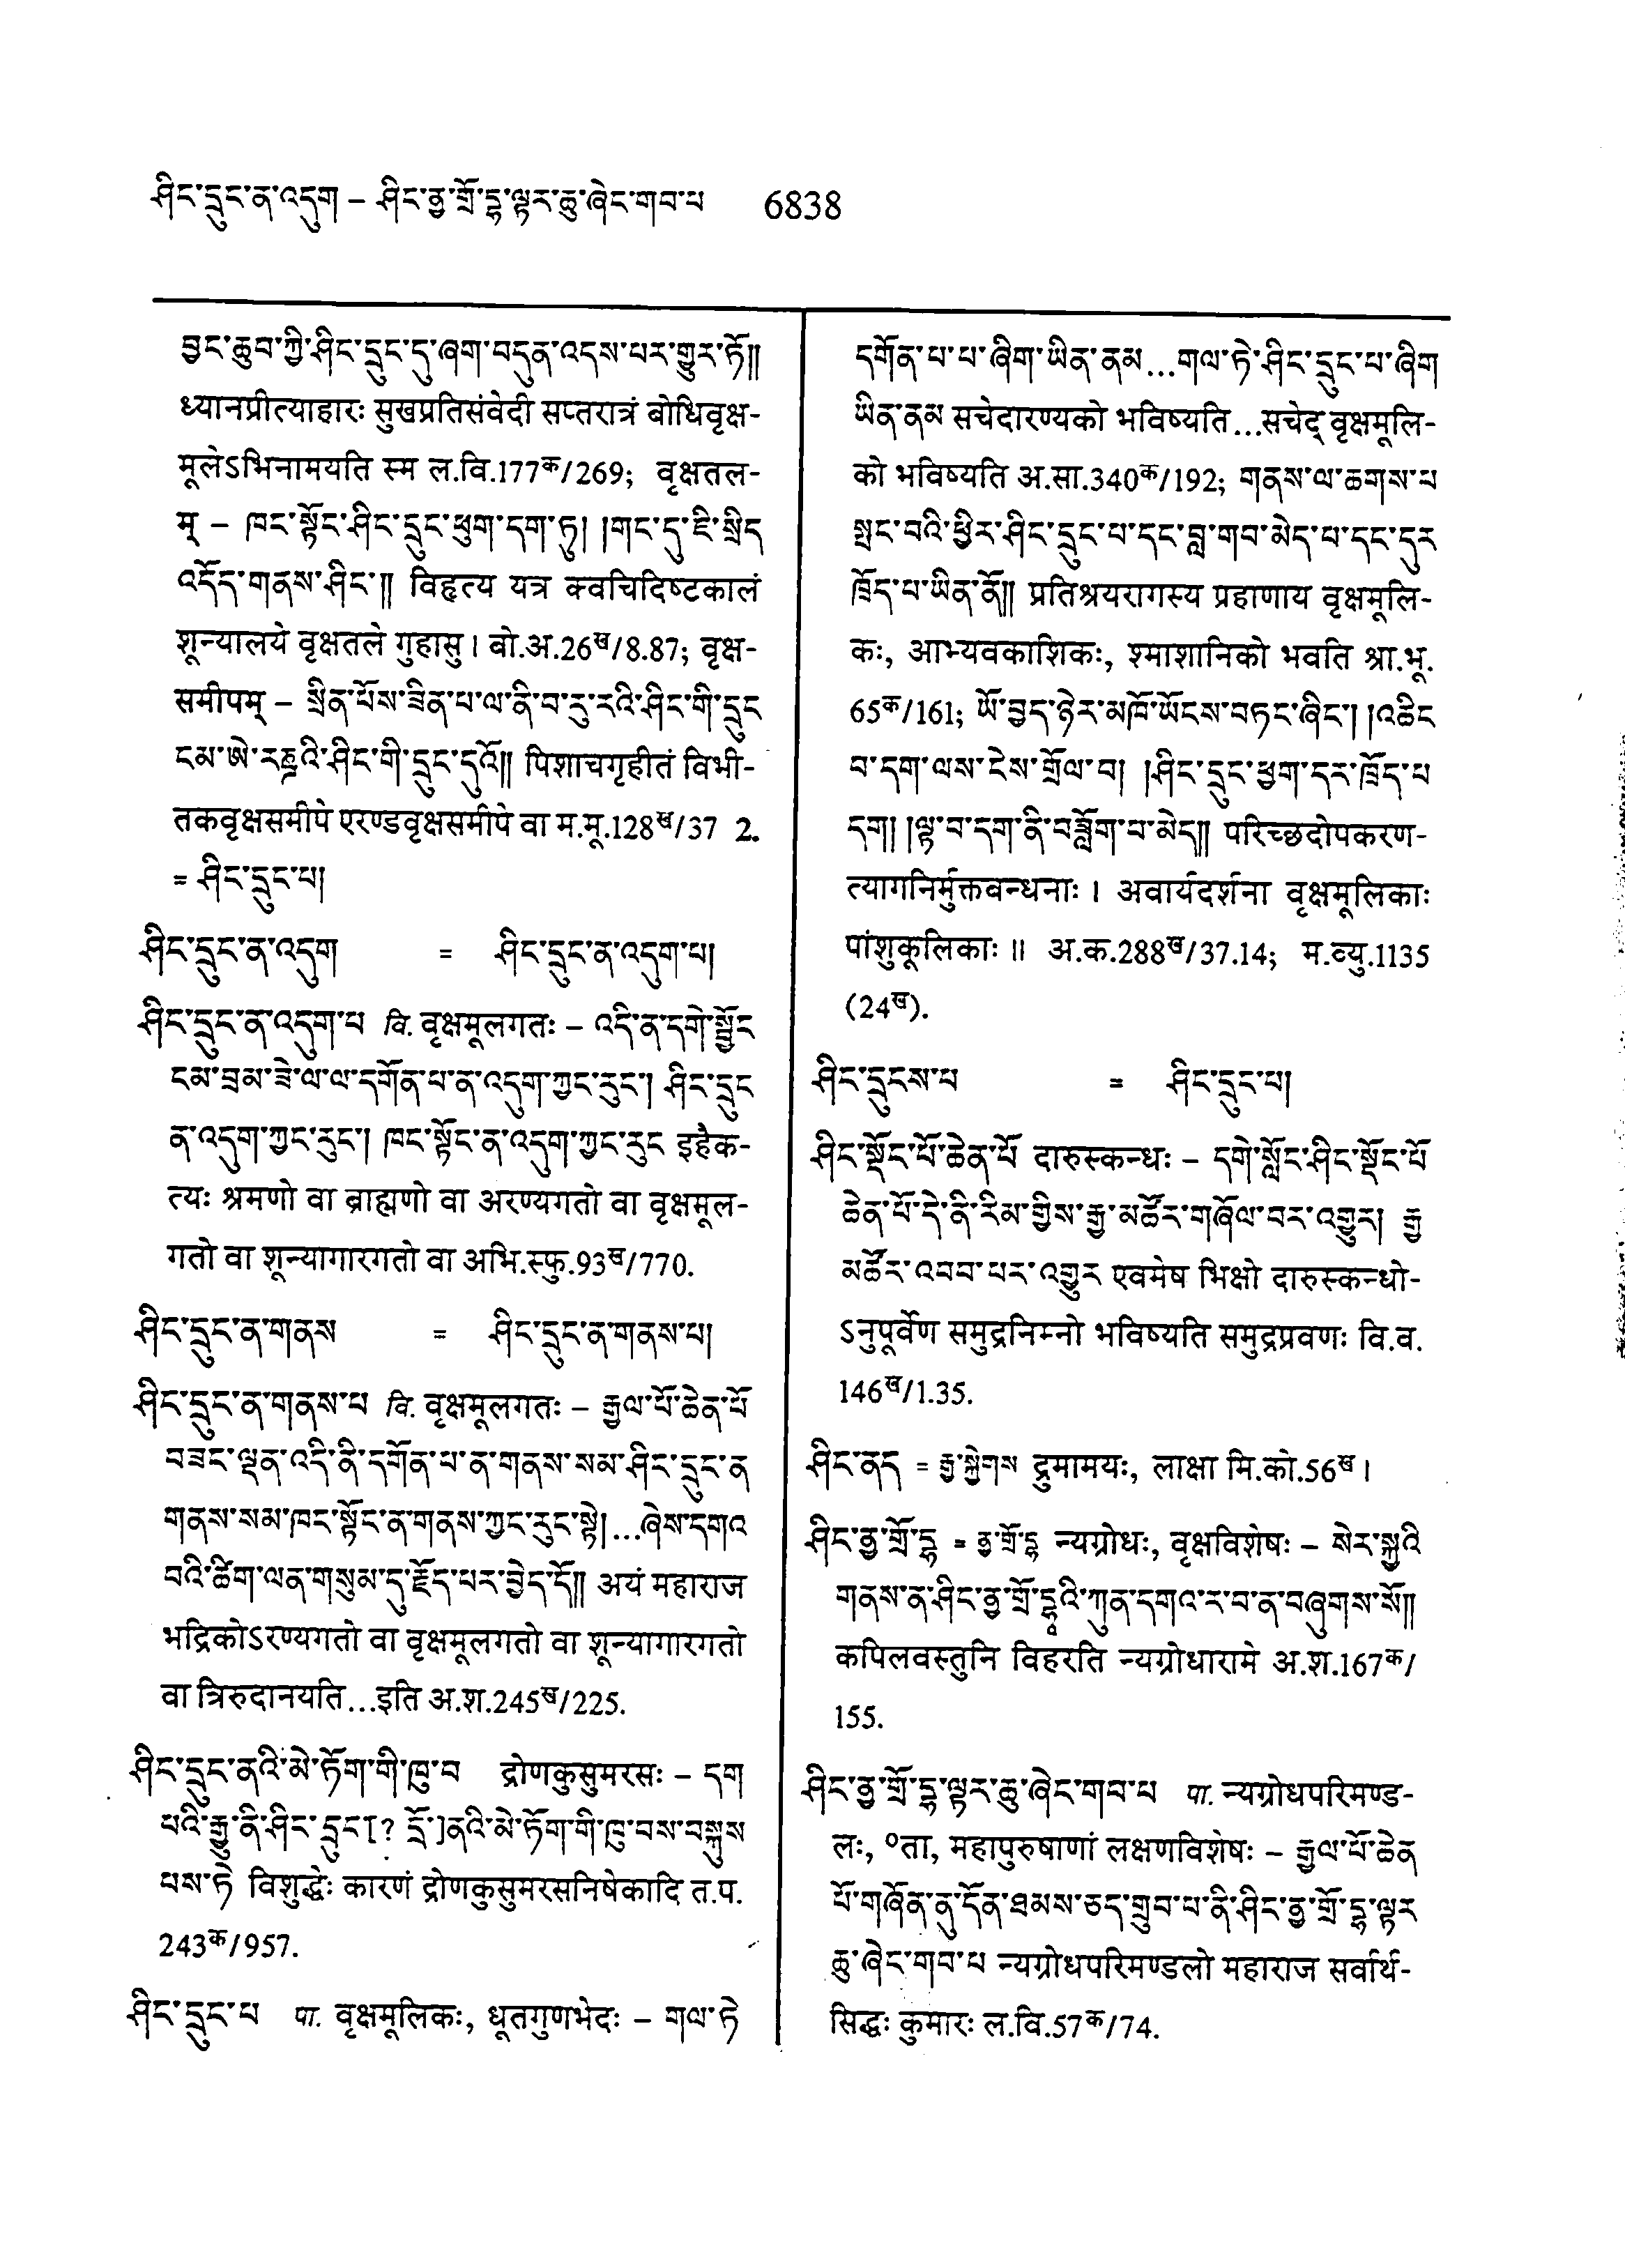 ཤིང་དྲུང་ན་འདུག – ཤིང་ནྱ་གྲོ་དྷ་ལྟར་ཆུ་ཞེང་གབ་པ 6838
བྱང་ཆུབ་ཀྱི་ཤིང་དྲུང་དུ་ཞག་བདུན་འདས་པར་གྱུར་ཏོ༎
ध्यानप्रीत्याहारः सुखप्रतिसंवेदी सप्तरात्रं बोधिवृक्ष-
मूलेऽभिनामयति स्म ल.वि.177क/269; वृक्षतल-
म् – ཁང་སྟོང་ཤིང་དྲུང་ཕུག་དག་ཏུ། །གང་དུ་ཇི་སྲིད
འདོད་གནས་ཤིང་༎ विहृत्य यत्र क्वचिदिष्टकालं
शून्यालये वृक्षतले गुहासु। बो.अ.26ख/8.87; वृक्ष-
समीपम् – སྲིན་པོས་ཟིན་པ་ལ་ནི་བ་རུ་རའི་ཤིང་གི་དྲུང
ངམ་ཨེ་རཎྜའི་ཤིང་གི་དྲུང་དུའོ༎ पिशाचगृहीतं विभी-
तकवृक्षसमीपे एरण्डवृक्षसमीपे वा म.मू.128ख/37 2.
= ཤིང་དྲུང་པ།
ཤིང་དྲུང་ན་འདུག = ཤིང་དྲུང་ན་འདུག་པ།
ཤིང་དྲུང་ན་འདུག་པ वि. वृक्षमूलगतः – འདི་ན་དགེ་སྦྱོང
ངམ་བྲམ་ཟེ་ལ་ལ་དགོན་པ་ན་འདུག་ཀྱང་རུང་། ཤིང་དྲུང
ན་འདུག་ཀྱང་རུང་། ཁང་སྟོང་ན་འདུག་ཀྱང་རུང इहैक-
त्यः श्रमणो वा ब्राह्मणो वा अरण्यगतो वा वृक्षमूल-
गतो वा शून्यागारगतो वा अभि.स्फु.93ख/770.
ཤིང་དྲུང་ན་གནས = ཤིང་དྲུང་ན་གནས་པ།
ཤིང་དྲུང་ན་གནས་པ वि. वृक्षमूलगतः – རྒྱལ་པོ་ཆེན་པོ
བཟང་ལྡན་འདི་ནི་དགོན་པ་ན་གནས་སམ་ཤིང་དྲུང་ན
གནས་སམ་ཁང་སྟོང་ན་གནས་ཀྱང་རུང་སྟེ།...ཞེས་དགའ
བའི་ཚིག་ལན་གསུམ་དུ་རྗོད་པར་བྱེད་དོ༎ अयं महाराज
भद्रिकोऽरण्यगतो वा वृक्षमूलगतो वा शून्यागारगतो
वा त्रिरुदानयति...इति अ.श.245ख/225.
ཤིང་དྲུང་ནའི་མེ་ཏོག་གི་ཁུ་བ द्रोणकुसुमरसः – དག
པའི་རྒྱུ་ནི་ཤིང་དྲུང[? དྲོ་]ནའི་མེ་ཏོག་གི་ཁུ་བས་བསྐུས
པས་ཏེ विशुद्धेः कारणं द्रोणकुसुमरसनिषेकादि त.प.
243क/957.
ཤིང་དྲུང་པ पा. वृक्षमूलिकः, धूतगुणभेदः – གལ་ཏེ
དགོན་པ་པ་ཞིག་ཡིན་ནམ...གལ་ཏེ་ཤིང་དྲུང་པ་ཞིག
ཡིན་ནམ सचेदारण्यको भविष्यति...सचेद् वृक्षमूलि-
को भविष्यति अ.सा.340क/192; གནས་ལ་ཆགས་པ
སྤང་བའི་ཕྱིར་ཤིང་དྲུང་པ་དང་བླ་གབ་མེད་པ་དང་དུར
ཁྲོད་པ་ཡིན་ནོ༎ प्रतिश्रयरागस्य प्रहाणाय वृक्षमूलि-
कः, आभ्यवकाशिकः, श्माशानिको भवति श्रा.भू.
65क/161; ཡོ་བྱད་ཉེར་མཁོ་ཡོངས་བཏང་ཞིང་། །འཆིང
བ་དག་ལས་ངེས་གྲོལ་བ། །ཤིང་དྲུང་ཕྱག་དར་ཁྲོད་པ
དག། །ལྟ་བ་དག་ནི་བཟློག་པ་མེད༎ परिच्छदोपकरण-
त्यागनिर्मुक्तबन्धनाः। अवार्यदर्शना वृक्षमूलिकाः
पांशुकूलिकाः॥ अ.क.288ख/37.14; म.व्यु.1135
(24ख).
ཤིང་དྲུངས་པ = ཤིང་དྲུང་པ།
ཤིང་སྡོང་པོ་ཆེན་པོ दारुस्कन्धः – དགེ་སློང་ཤིང་སྡོང་པོ
ཆེན་པོ་དེ་ནི་རིམ་གྱིས་རྒྱ་མཚོར་གཞོལ་བར་འགྱུར། རྒྱ
མཚོར་འབབ་པར་འགྱུར एवमेष भिक्षो दारुस्कन्धो-
ऽनुपूर्वेण समुद्रनिम्नो भविष्यति समुद्रप्रवणः वि.व.
146ख/1.35.
ཤིང་ནད = རྒྱ་སྐྱེགས द्रुमामयः, लाक्षा मि.को.56ख।
ཤིང་ནྱ་གྲོ་དྷ = ནྱ་གྲོ་དྷ न्यग्रोधः, वृक्षविशेषः – སེར་སྐྱའི
གནས་ན་ཤིང་ནྱ་གྲོ་དྷའི་ཀུན་དགའ་ར་བ་ན་བཞུགས་སོ༎
कपिलवस्तुनि विहरति न्यग्रोधारामे अ.श.167क/
155.
ཤིང་ནྱ་གྲོ་དྷ་ལྟར་ཆུ་ཞེང་གབ་པ पा. न्यग्रोधपरिमण्ड-
लः, °ता, महापुरुषाणां लक्षणविशेषः – རྒྱལ་པོ་ཆེན
པོ་གཞོན་ནུ་དོན་ཐམས་ཅད་གྲུབ་པ་ནི་ཤིང་ནྱ་གྲོ་དྷ་ལྟར
ཆུ་ཞེང་གབ་པ न्यग्रोधपरिमण्डलो महाराज सर्वार्थ-
सिद्धः कुमारः ल.वि.57क/74.